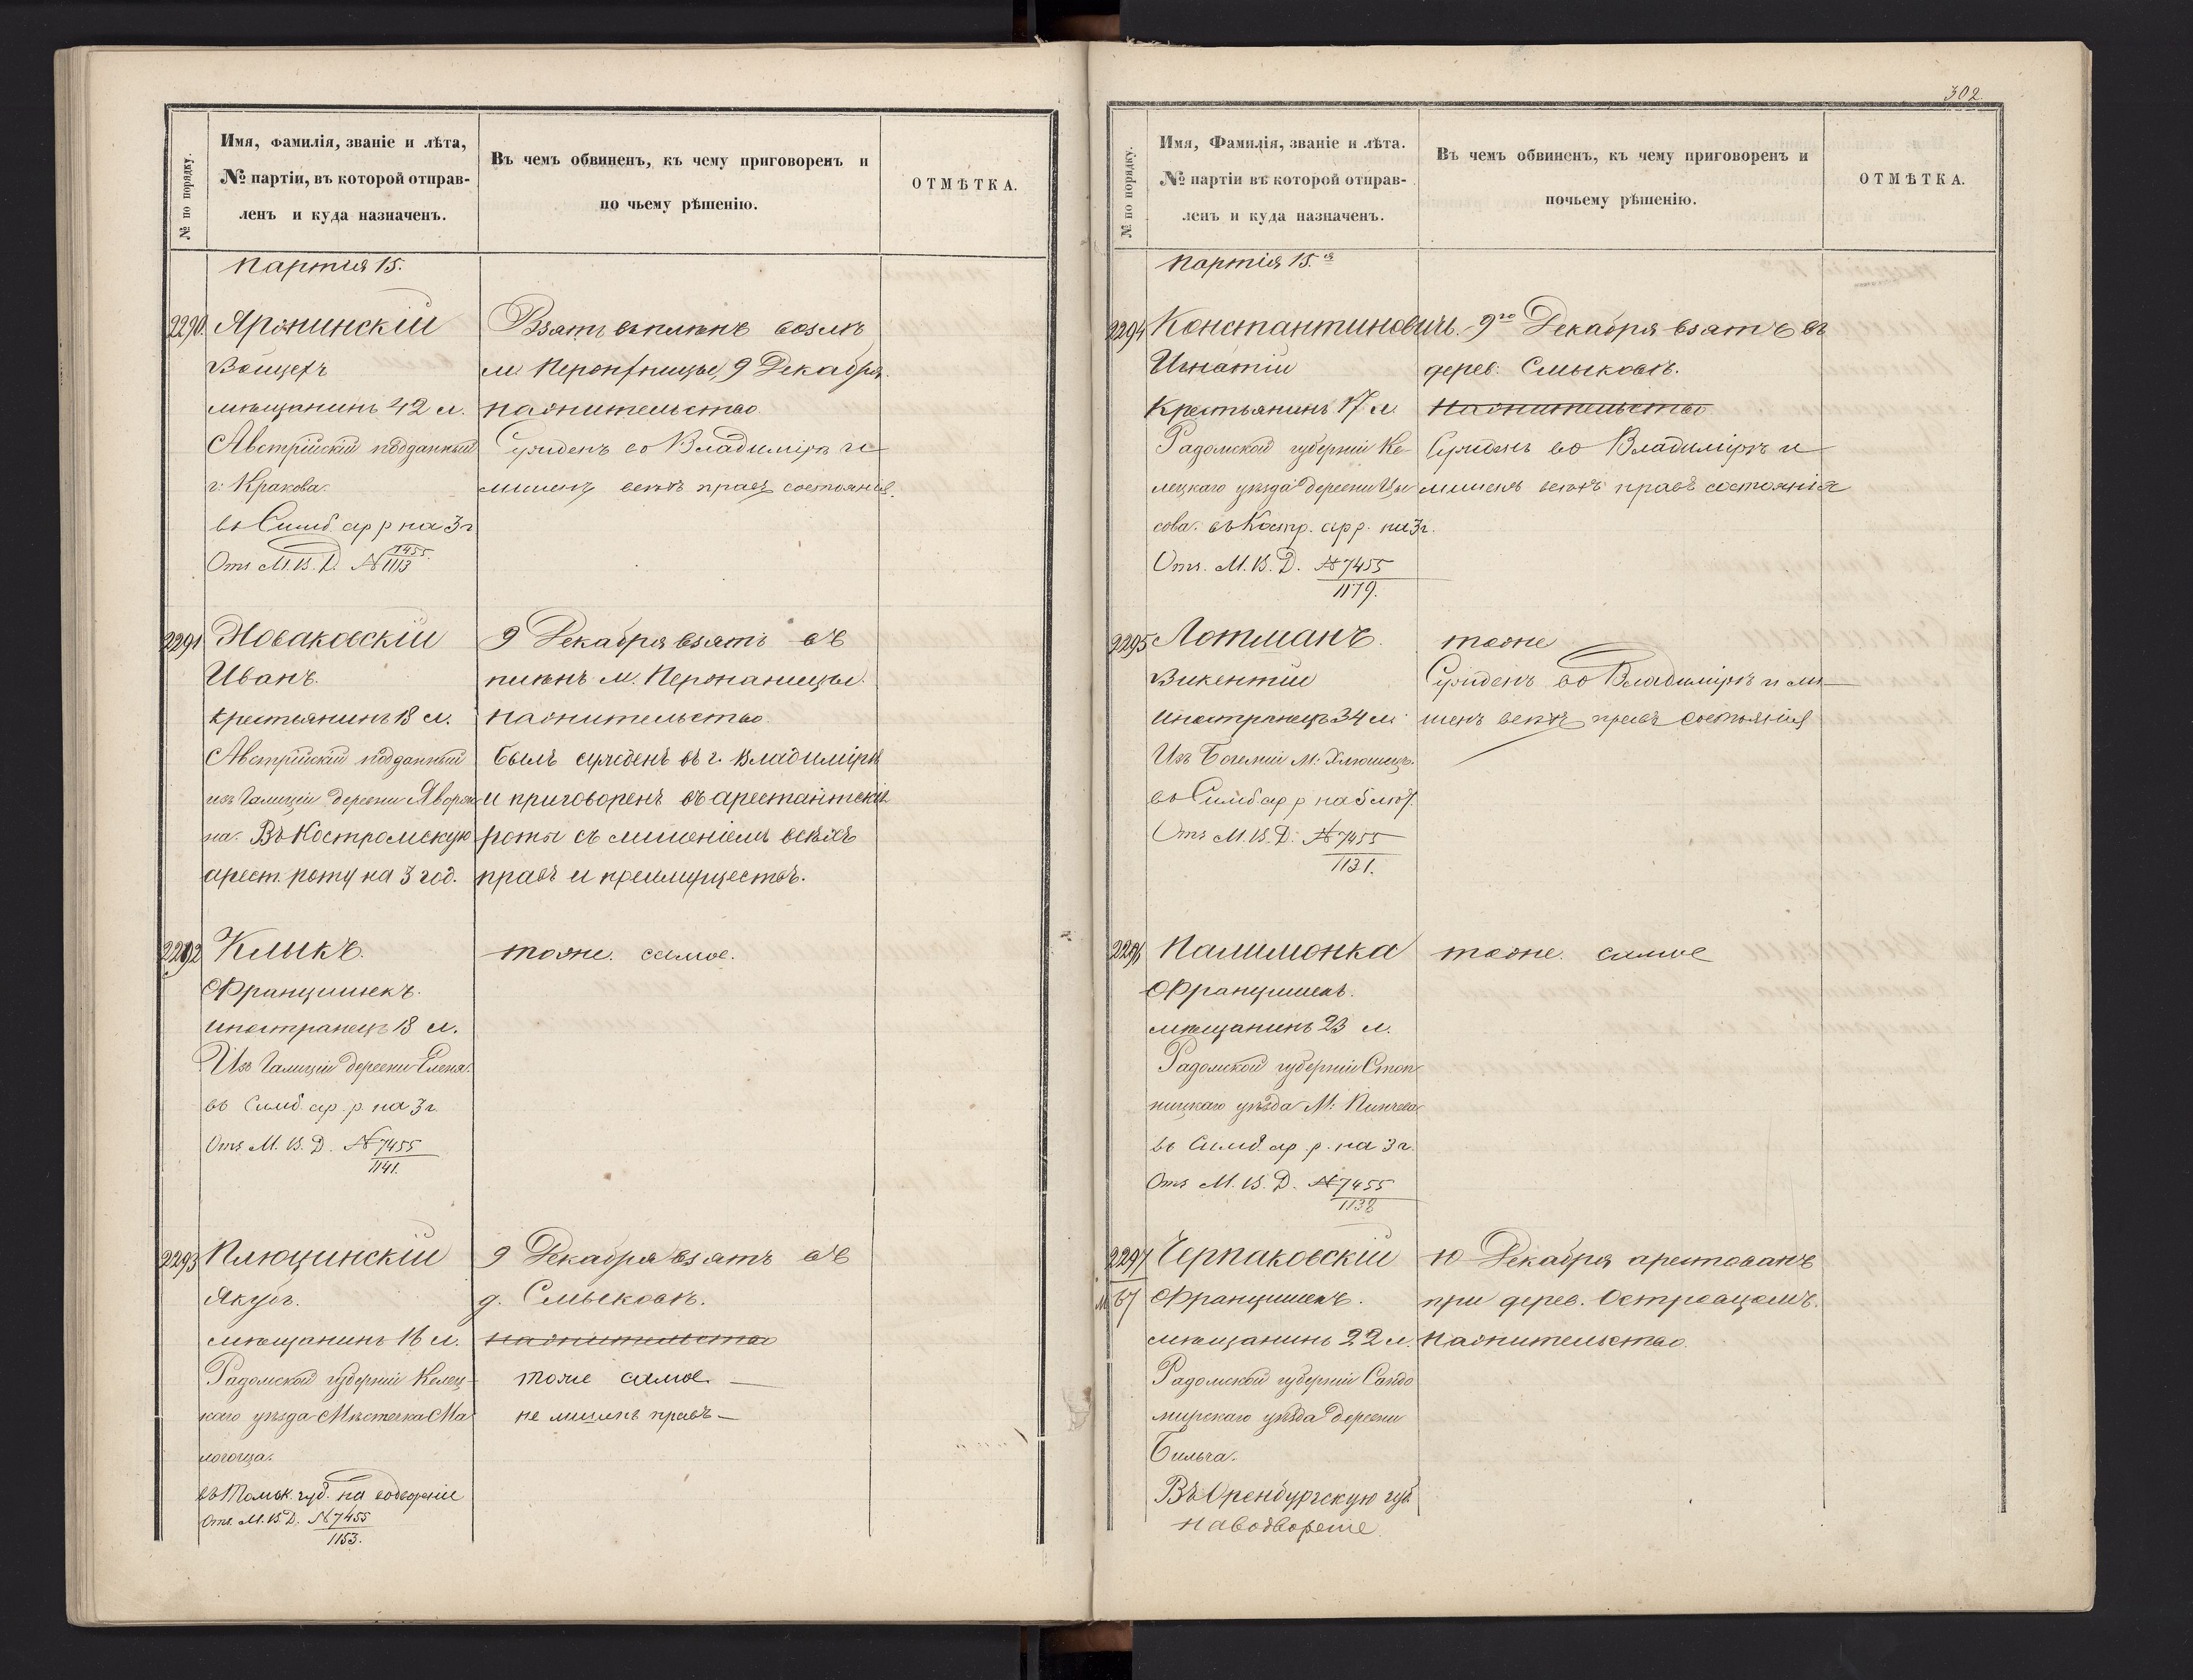 № по порядку.
Имя, фамилія, званіе и лѣта,
№ партіи, въ которой отправ-
ленъ и куда назначенъ.
Въ чемъ обвиненъ, къ чему приговоренъ и
по чьему рѣшенію.
ОТМѢТКА.
Партія 15.
2290. Яронинскій
Войцехъ
мѣщанинъ 42 л.
Австрійскій подданный
г. Кракова.
въ Симб. ар р на 3 г
Отъ М. В. Д. № 7455
1113
Взятъ въ плѣнъ возлѣ
м 9 Декабря.
на жительство
Сужденъ во Владимірѣ и
лишенъ всѣхъ правъ состоянія.
2291 Новаковскій
Иванъ.
крестьянинъ 18 л.
Австрійскій подданный
изъ Галиціи деревни
на. Въ Костромскую
арест. роту на 3 год.
9 Декабря взятъ въ
плѣнъ м.
на жительство
былъ сужденъ въ г. Владимірѣ
и приговоренъ въ арестантскія
роты съ лишеніемъ всѣхъ
правъ и преимуществъ.
2292 Клыкъ.
Францишекъ.
иностранецъ 18 л.
Изъ Галиціи деревни Елена.
въ Симб. ар. р. на 3 г.
Отъ М. В. Д. № 7455
1141.
тоже самое.
2293 Плющинскій
Якубъ.
мѣщанинъ 16 л.
Радомской губерніи Келец-
каго уѣзда Мѣстечка Ма
логоща.
въ Томск. губ. на водвореніе
Отъ М. В. Д. № 7455
1153.
9 Декабря взятъ въ
д. Смыковѣ.
на жительство
тоже самое. —
не лишенъ правъ —
302.
№ по порядку.
Имя, Фамилія, званіе и лѣта.
№ партіи въ которой отправ-
ленъ и куда назначенъ.
Въ чемъ обвиненъ, къ чему приговоренъ и
почьему рѣшенію.
ОТМѢТКА.
Партія 15.я
2294 Константиновичъ.
Игнатій
Крестьянинъ 17 л.
Радомской губерніи Ке-
лецкаго уѣзда деревни Цы
сова. въ Костр. ар р. на 3 г.
Отъ. М. В. Д. № 7455
1179.
9го Декабря взятъ въ
дерев: Смыковѣ.
на жительство
Сужденъ во Владимірѣ и
лишенъ всѣхъ правъ состоянія
2295 Лотманъ.
Викентій
иностранецъ 34 л
Изъ Богеміи М.
въ Симб ар р на
Отъ М. В. Д. № 7455
1131.
тоже
Сужденъ во Владимірѣ и ли-
шенъ всѣхъ правъ состоянія
2296 Палимонка
Францишекъ.
мѣщанинъ 23 л.
Радомской губерніи Стоп
ницкаго уѣзда М: Пинчева
въ Симб. ар р. на 3 г.
Отъ М. В. Д. № 7455
1138
тоже. самое
2297 Черпаковскій
М 67 Францишекъ.
мѣщанинъ 22 л.
Радомской губерніи Сандо
мирскаго уѣзда деревни
Бильча.
Въ Оренбургскую губ
на водвореніе.
10 Декабря арестованъ
при дерев. Островцемъ.
На жительство.